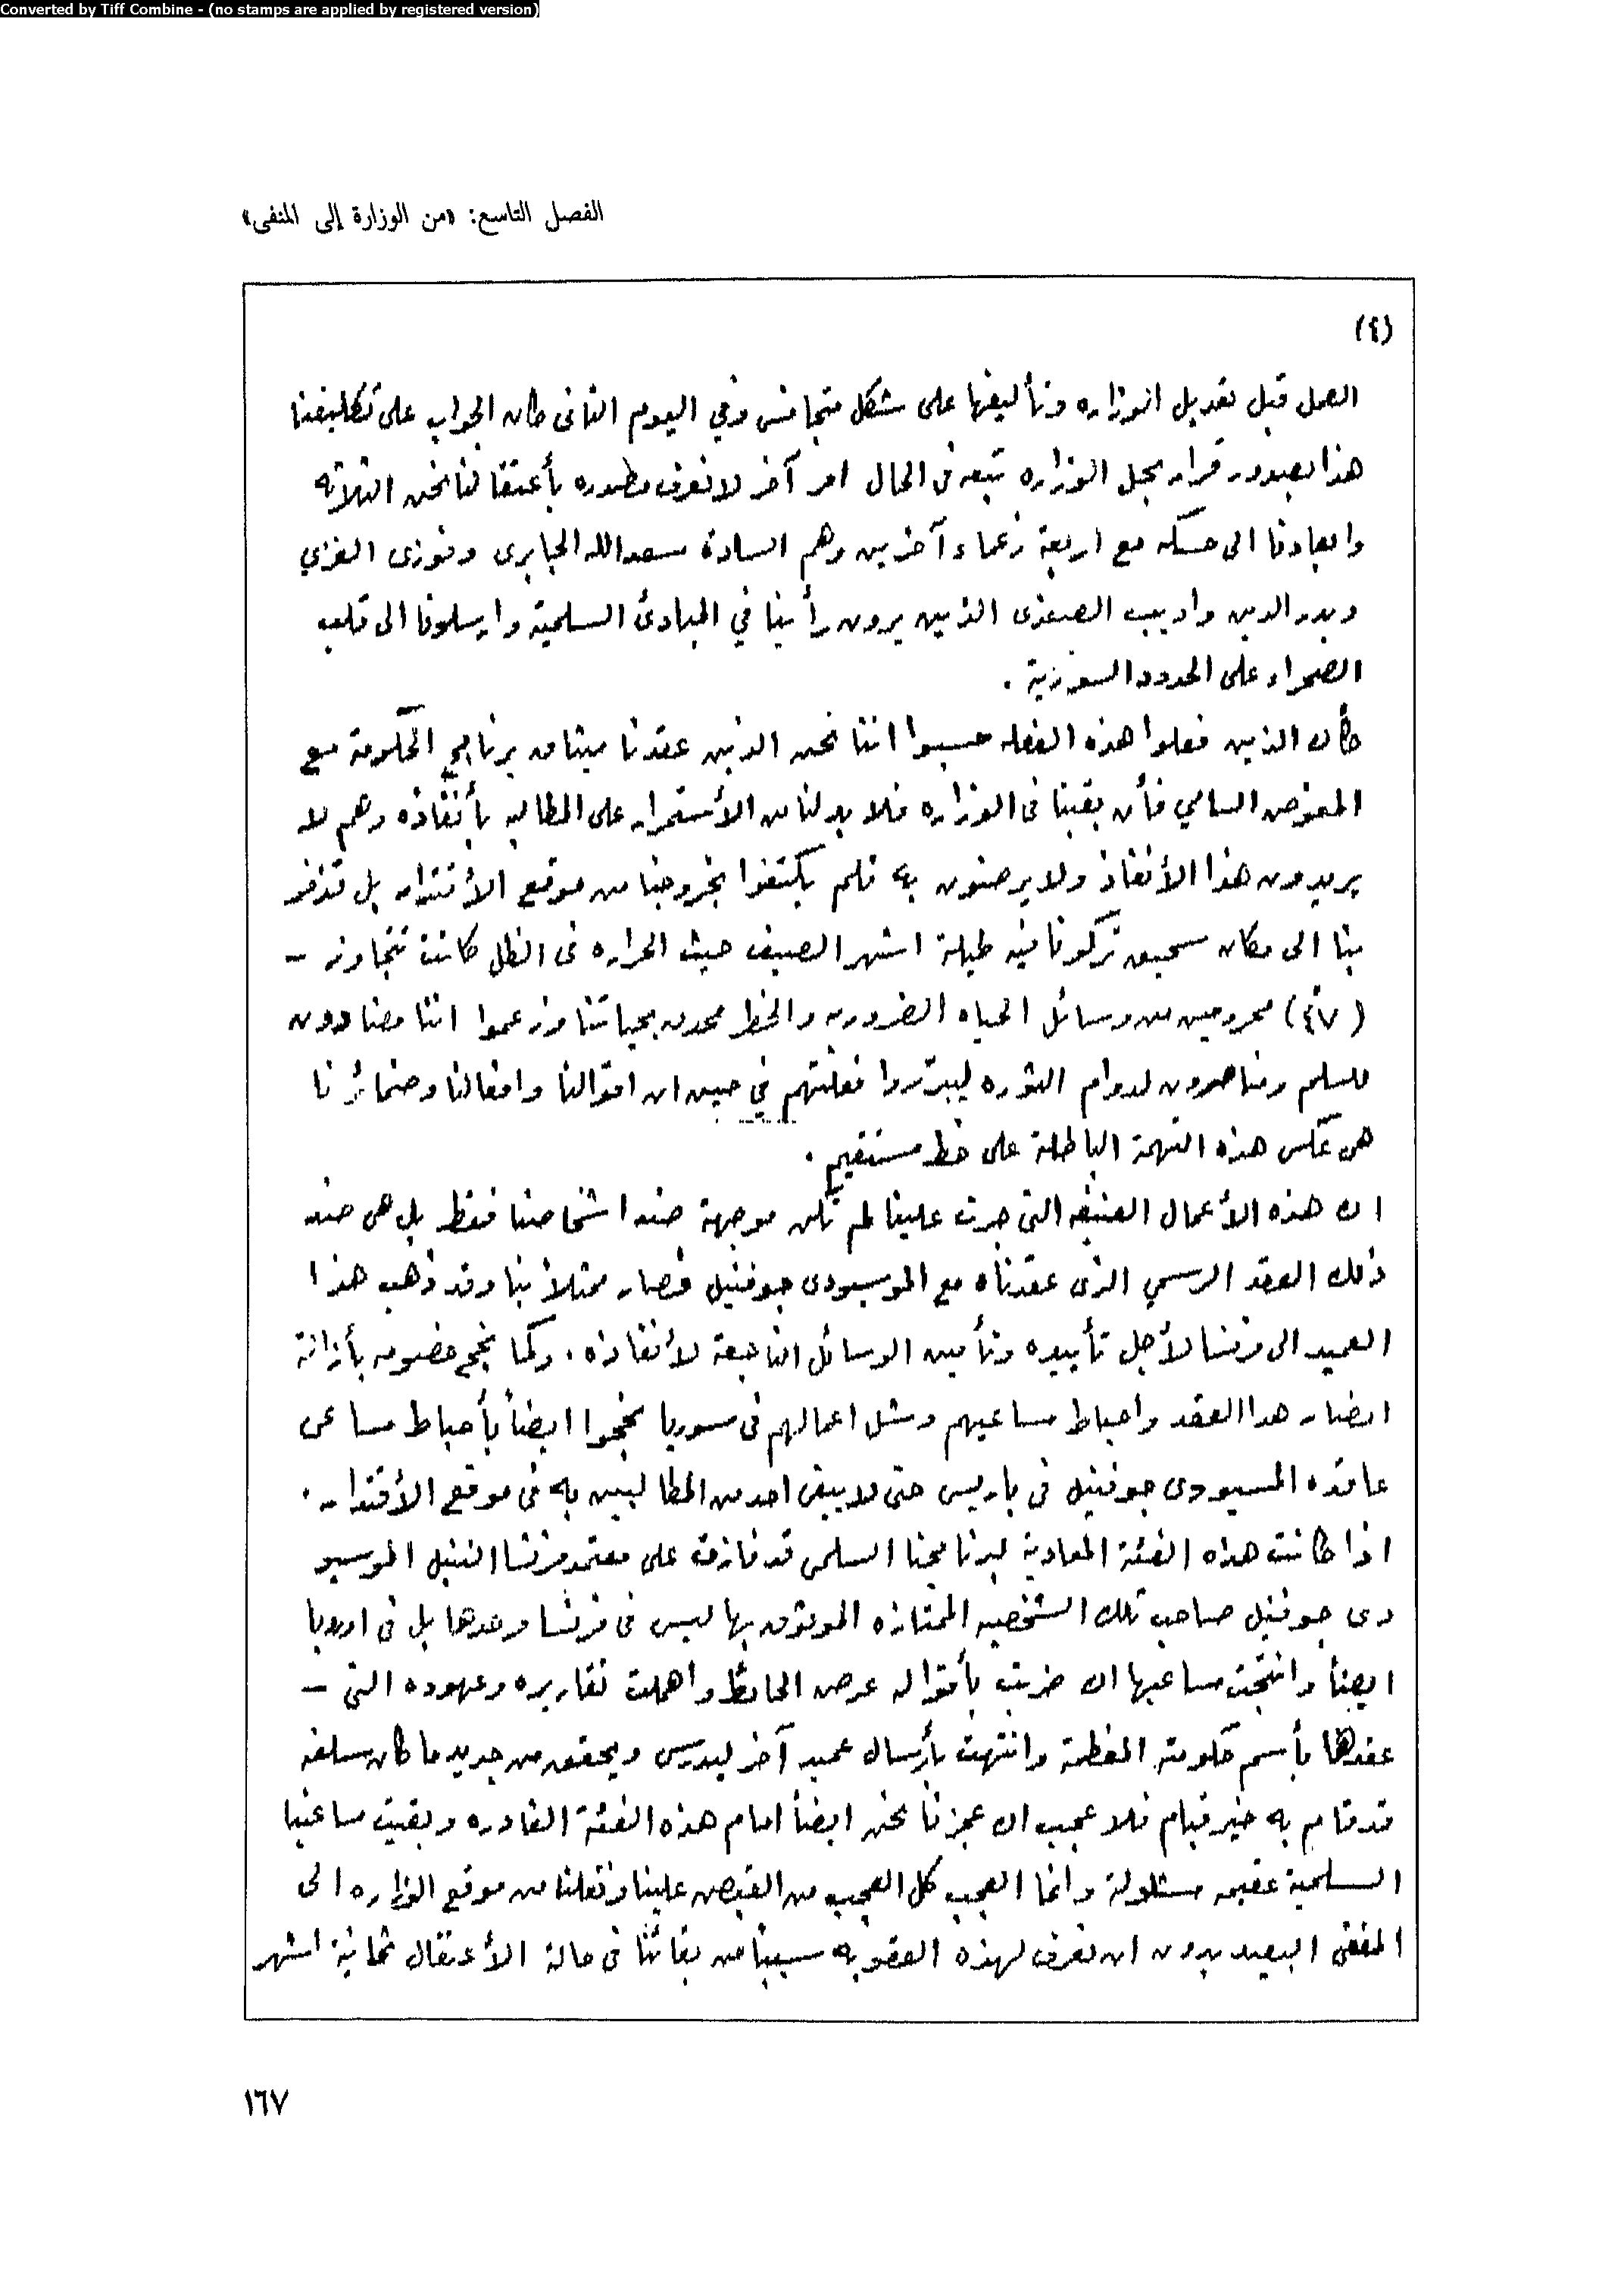 Converted by Tiff Combine - (no stamps are applied by registered version)
الفصل التاسع: «من الوزارة إلى المنفى»
(٤)
العمل قبل تعديل الوزاره وتأليفها على شكل متجانس وفي اليوم الثانى كان الجواب على تكليفنا
هذا بصدور قرار بحل الوزاره تبعه فى الحال امر آخر لا نعرف مصدره بأعتقالنا نحن الثلاثه
وابعادنا الى حسكه مع اربعة زعماء آخرين وهم السادة سعدالله الجابرى وفوزى الغزي
وبدر الدين واديب الصفدى الذين يرون رأينا في المبادئ السلمية وارسلونا الى قلب
الصحراء على الحدود السورية .
كأن الذين فعلوا هذه الفعله حسبوا اننا نحن الذين عقدنا ميثاق برنامج الحكومة مع
المفوض السامي فأن بقينا فى الوزاره فلا بد لنا من الأستمرار على المطالبه بأنفاذه وهم لا
يريدون هذا الأنفاذ ولا يرضون به فلم يكتفوا بخروجنا من موقع الأقتدار بل قذفو
بنا الى مكان سحيق تركونا فيه طيلة اشهر الصيف حيث الحراره فى الظل كانت تتجاوز –
(٤٧) محرومين من وسائل الحياه الضروريه والخطر محدق بحياتنا وزعموا اننا مضادون
للسلم ومناصرون لدوام الثوره ليبرروا فعلتهم في حين ان اقوالنا وافعالنا وضمائرنا
هى عكس هذه التهمة الباطلة على خط مستقيم .
ان هذه الأعمال العنيفه التى جرت علينا لم تكن موجهة ضد اشخاصنا فقط بل هى ضد
ذلك العقد الرسمي الذى عقدناه مع الموسيودى جوفنيل فصار ممثلاً بنا وقد ذهب هذا
العميد الى فرنسا لأجل تأييده وتأمين الوسائل الناجعة لأنفاذه . وكما نجح خصومه بأزالة
انصار هدا العقد واحباط مساعيهم وشل اعمالهم فى سوريا نجحوا ايضاً بأحباط مساعى
عاقده المسيودى جوفنيل فى باريس حتى لا يبقى احد من المطالبين به فى موقع الأقتدار .
اذا كانت هذه الفئة المعادية لبرنامجنا السلمى قد فازت على معتمد فرنسا النبيل الموسيو
دى جوفنيل صاحب تلك الشخصيه الممتازه الموثوق بها ليس فى فرنسا وحدها بل فى اوروبا
ايضاً وانتجت مساعيها ان ضربت بأقواله عرض الحائط واهملت تقاريره وعهوده التى –
عقدها بأسم حكومته المعظمة وانتهت بأرسال عميد آخر ليدرس ويحقق من جديد ما كان سلفه
قد قام به خير قيام فلا عجب ان عجزنا نحن ايضاً امام هذه الفئة القادره وبقيت مساعينا
السلمية عقيمه مشلولة وانما العجب كل العجب من القبض علينا ونقلنا من موقع الوزاره الى
المنفى البعيد بدون ان نعرف لهذه العقوبه سبباً من بقائنا فى حالة الأعتقال ثمانية اشهر
١٦٧